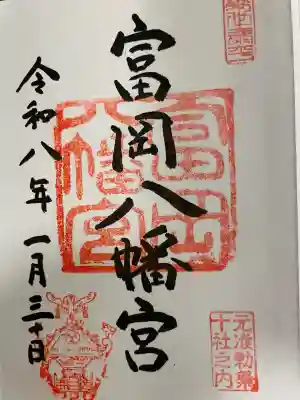 富岡八幡宮
令和八年一月三十日
富岡八幡宮
元准勅祭
十社之内